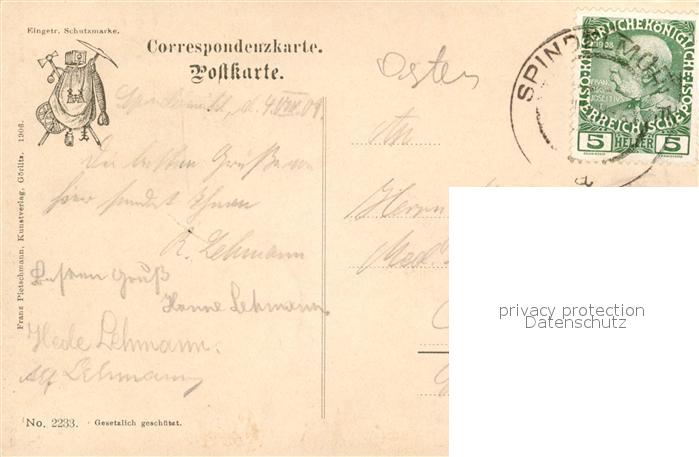 Eingetr. Schutzmarke.
Correspondenzkarte.
Postkarte.
Franz Pietschmann, Kunstverlag, Görlitz. 1906.
Spindelmühl, d. 4. VIII. 09.
Die besten Grüße von
hier sendet Ihnen
R. Lehmann
Besten Gruß
Hanne Lehmann
Hede Lehmann.
Lehmann
No. 2233. Gesetzlich geschützt.
An
Herrn
Med.
SPINDELMÜHLE
KAISERLICHE KÖNIGLICHE
ÖSTERREICHISCHE POST
1908
5 HELLER 5
privacy protection
Datenschutz